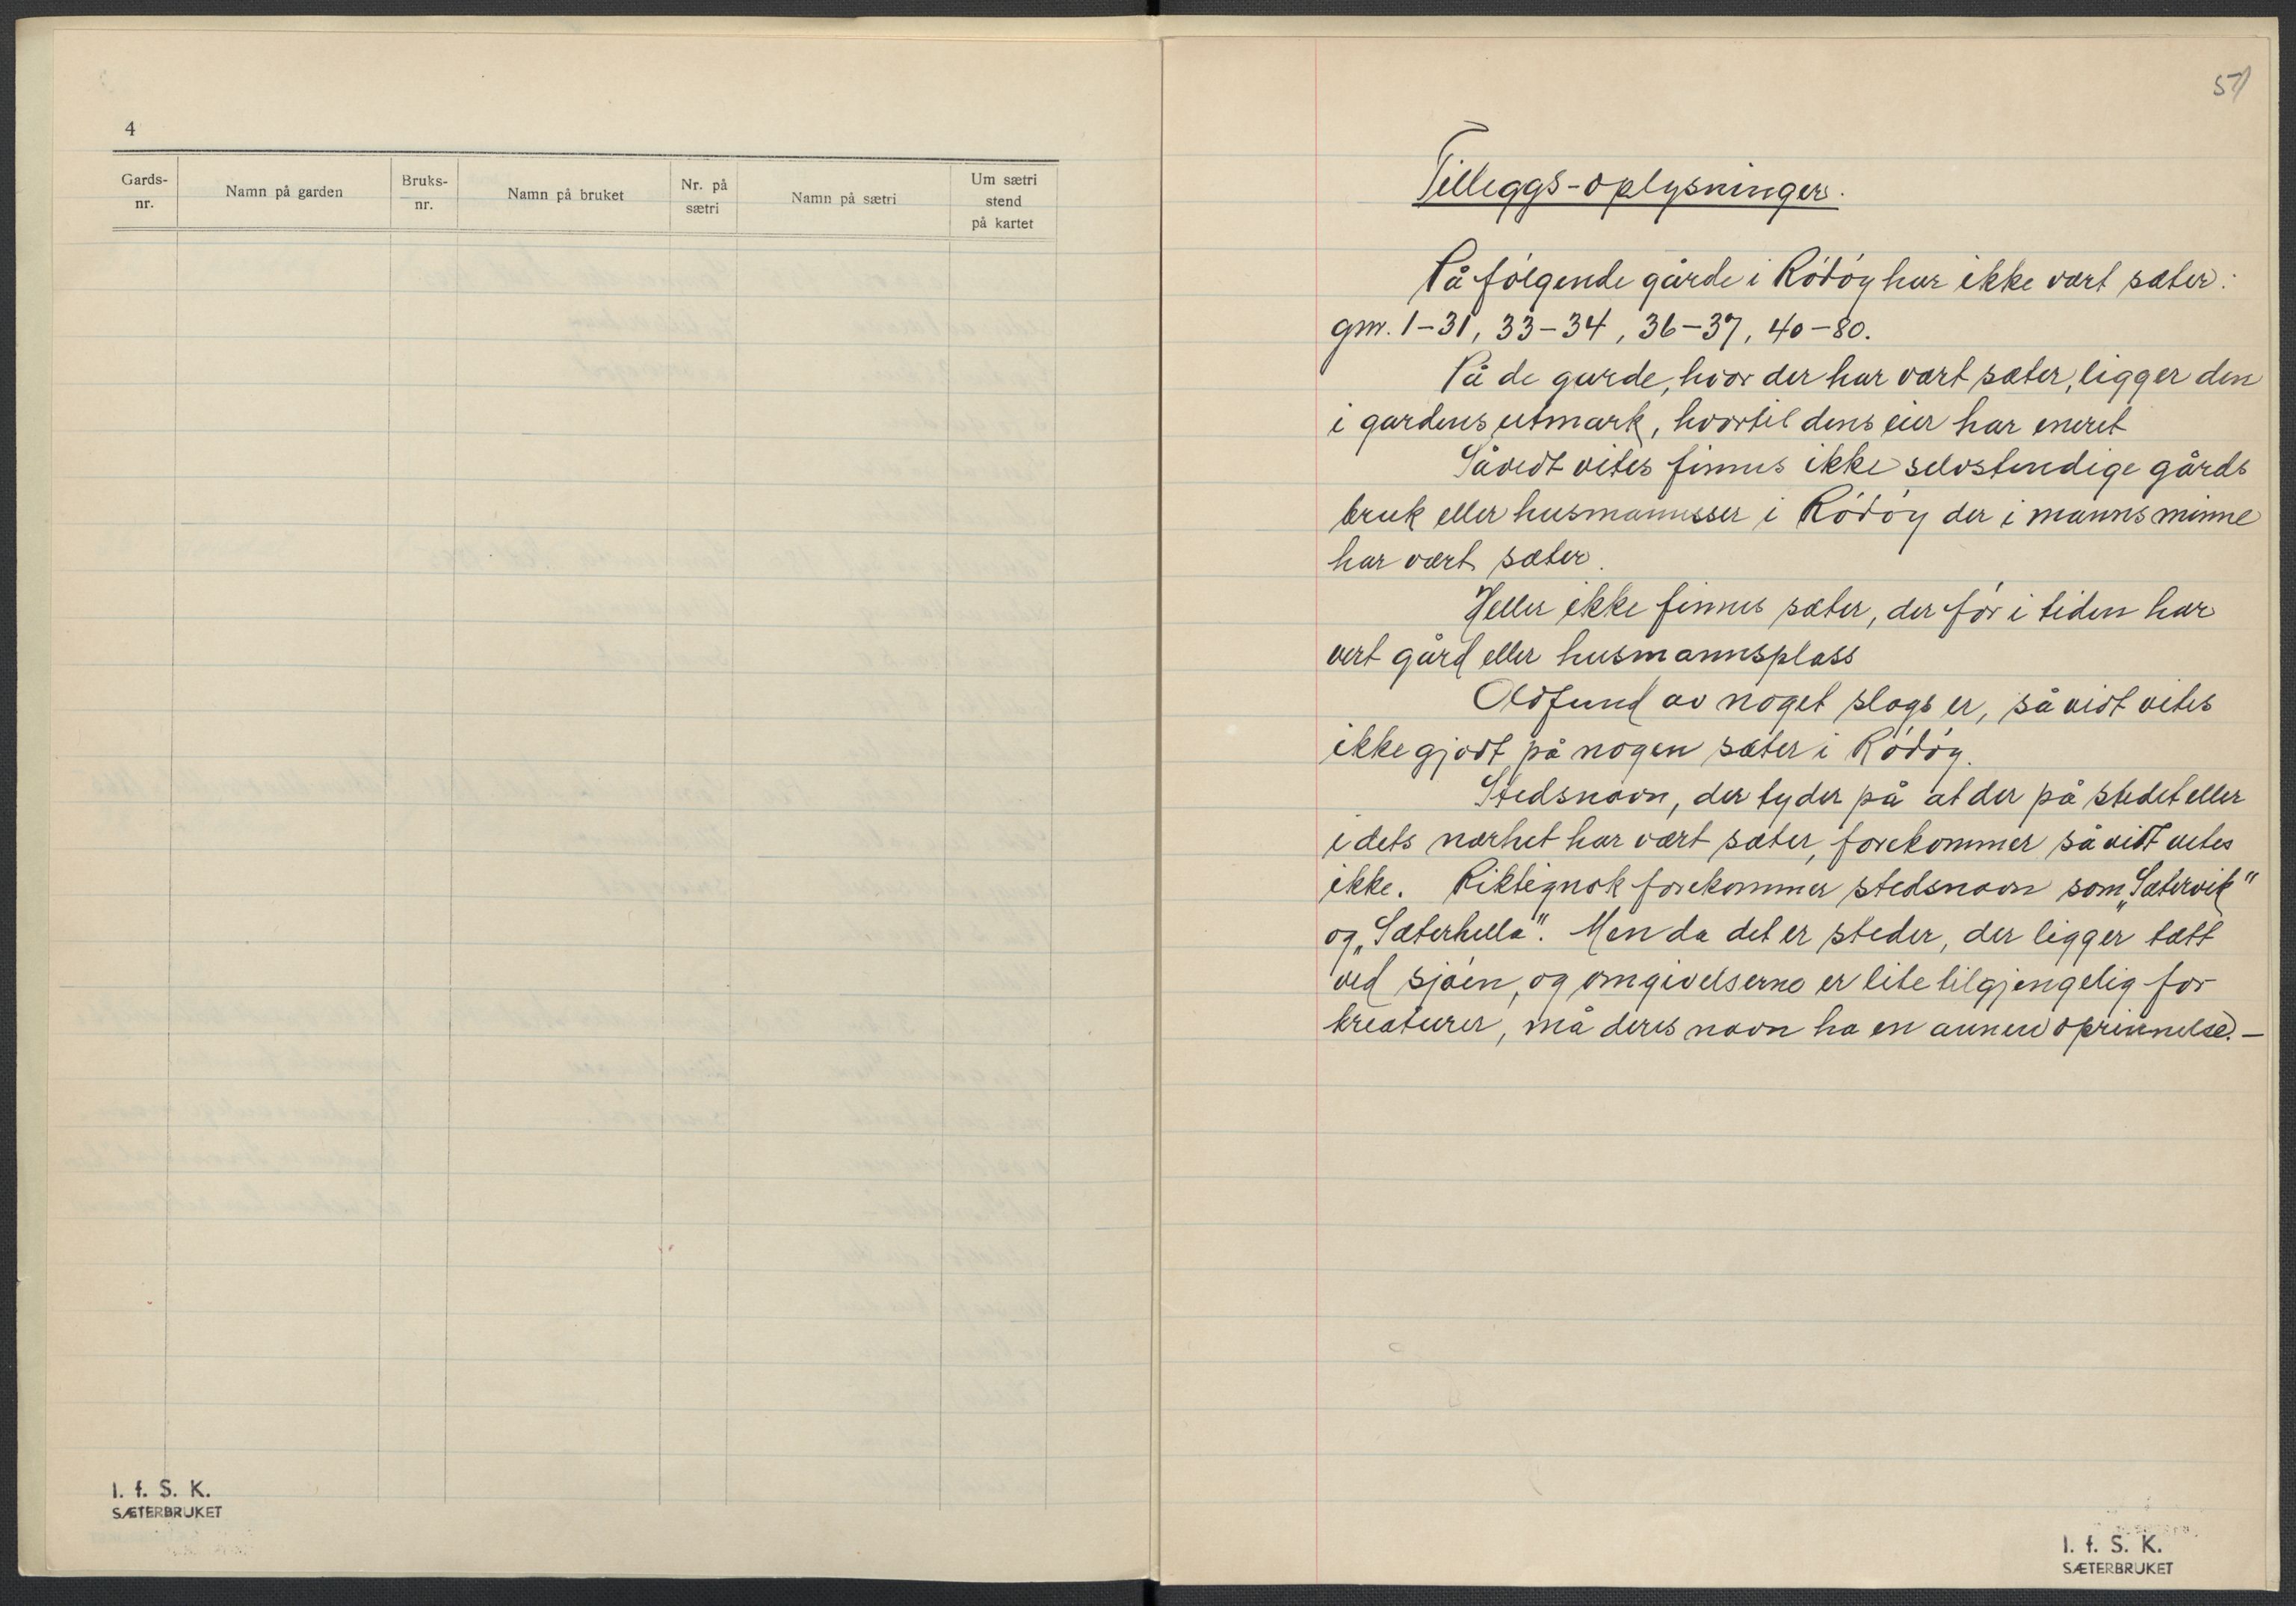 4
Gards-nr. Namn på garden Bruks-nr. Namn på bruket Nr. på sætri Namn på sætri Um sætri stend på kartet
I. f. S. K.
SÆTERBRUKET
51
Tilleggs-oplysninger.
På følgende gårde i Rödöy har ikke vært sæter:
gnr. 1-31, 33-34, 36-37, 40-80.
På de gårde, hvor der har vært sæter, ligger den
i gardens utmark, hvortil dens eier har eneret
Såvidt vites finnes ikke selvstendige gårds
bruk eller husmannsser i Rödöy der i manns minne
har vært sæter.
Heller ikke finnes sæter, der før i tiden har
vert gård eller husmannsplass
Oldfund av noget slags er, så vidt vites
ikke gjort på nogen sæter i Rödöy.
Stedsnavn, der tyder på at der på stedet eller
i dets nærhet har vært sæter, forekommer så vidt vites
ikke. Riktignok forekommer stedsnavn som „Sætervik"
og „Sæterhella". Men da det er steder, der ligger tætt
ved sjøen, og omgivelserne er lite tilgjengelig for
kreaturer, må deres navn ha en annen oprinnelse. —
I. f. S. K.
SÆTERBRUKET